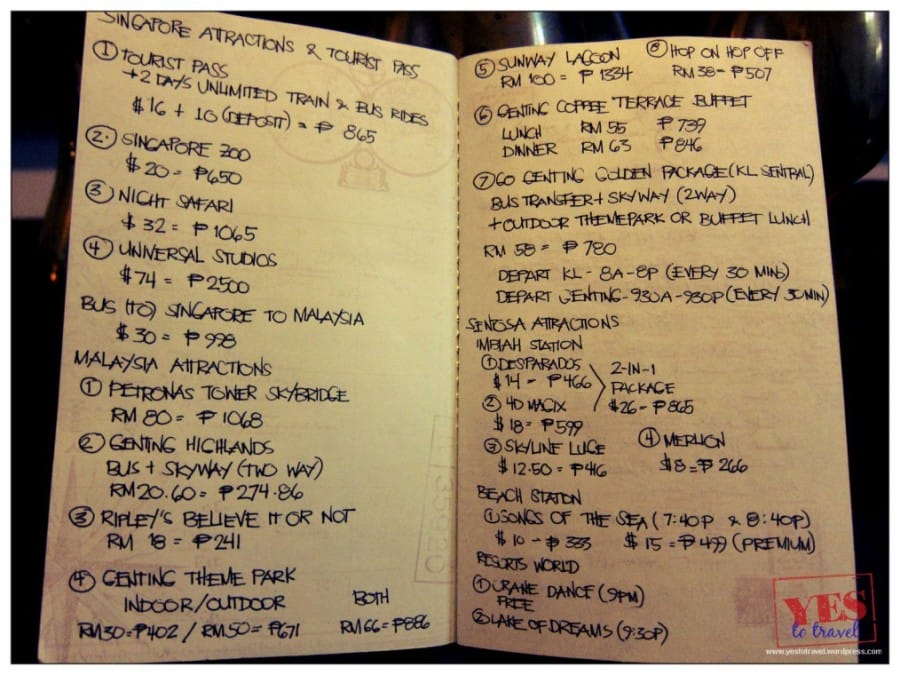 SINGAPORE ATTRACTIONS & TOURIST PASS
① TOURIST PASS
+ 2 DAYS UNLIMITED TRAIN & BUS RIDES
$16 + 10 (DEPOSIT) = ₱ 865
2. SINGAPORE ZOO
$20 = ₱650
③ NIGHT SAFARI
$32 = ₱1065
④ UNIVERSAL STUDIOS
$74 = ₱2500
BUS (TO) SINGAPORE TO MALAYSIA
$30 = ₱998
MALAYSIA ATTRACTIONS
① PETRONAS TOWER SKYBRIDGE
RM 80 = ₱1068
② GENTING HIGHLANDS
BUS + SKYWAY (TWO WAY)
RM20.60 = ₱274.86
③ RIPLEY'S BELIEVE IT OR NOT
RM 18 = ₱241
④ GENTING THEME PARK
INDOOR/OUTDOOR BOTH
RM30=₱402 / RM50=₱671 RM66=₱886
⑤ SUNWAY LAGOON ⑧ HOP ON HOP OFF
RM 100 = ₱1334 RM38- ₱507
⑥ GENTING COFFEE TERRACE BUFFET
LUNCH RM 55 ₱739
DINNER RM 63 ₱846
⑦ GO GENTING GOLDEN PACKAGE (KL SENTRAL)
BUS TRANSFER + SKYWAY (2WAY)
+ OUTDOOR THEMEPARK OR BUFFET LUNCH
RM 58 = ₱780
DEPART KL - 8A-8P (EVERY 30 MINS)
DEPART GENTING-930A-930P (EVERY 30MIN)
SENTOSA ATTRACTIONS
IMBIAH STATION
① DESPARADOS
$14 - ₱466
② 4D MAGIX
$18 = ₱599
2-IN-1
PACKAGE
$26 - ₱865
③ SKYLINE LUGE ④ MERLION
$12.50 = ₱416 $8 = ₱266
BEACH STATION
① SONGS OF THE SEA (7:40P & 8:40P)
$10 - ₱333 $15 = ₱499 (PREMIUM)
RESORTS WORLD
① CRANE DANCE (9PM)
FREE
② LAKE OF DREAMS (9:30P)
YES
to travel
www.yestotravel.wordpress.com